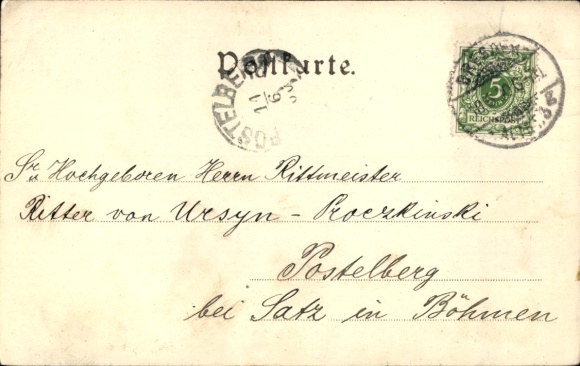 Postkarte.
5
REICHSPOST
DRESDEN
POSTELBERG
11
6
Sr. Hochgeboren Herrn Rittmeister
Ritter von Ursyn - Proczkinski
Postelberg
bei Satz in Böhmen